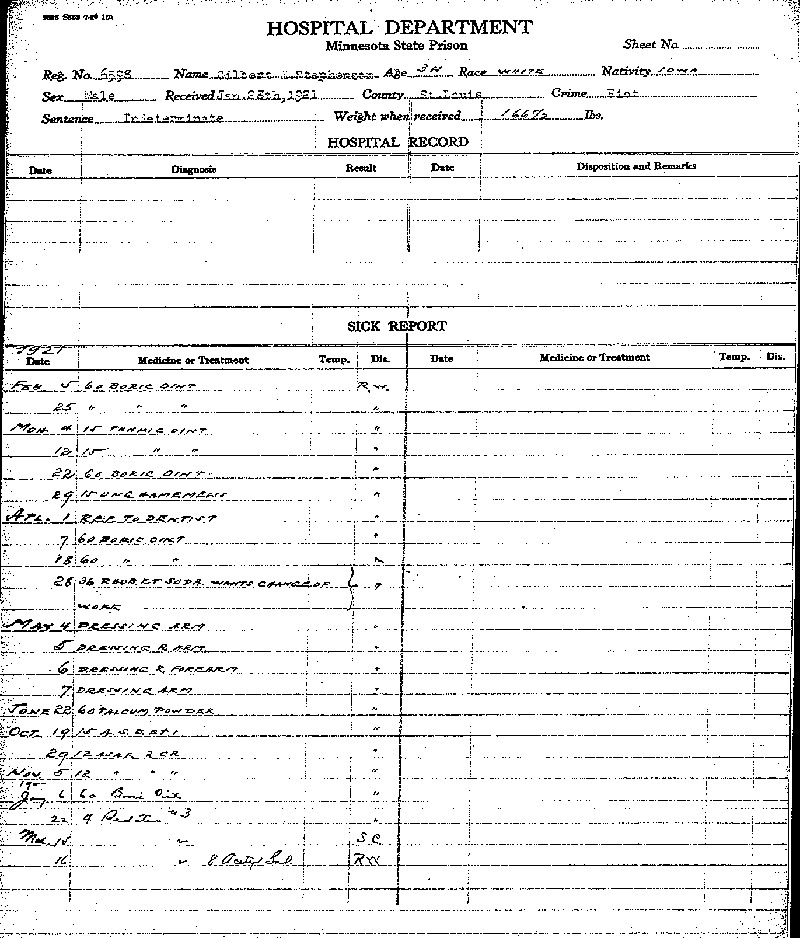 HOSPITAL DEPARTMENT
Minnesota State Prison
Sheet No.
Reg. No. 6598 Name Gilbert Stephenson Age 34 Race WHITE Nativity IOWA
Sex Male Received Jan 28th, 1921 County St. Louis Crime Riot
Sentence Indeterminate Weight when received 166½ lbs.
HOSPITAL RECORD
Date Diagnosis Result Date Disposition and Remarks
SICK REPORT
1921
Date Medicine or Treatment Temp. Dis. Date Medicine or Treatment Temp. Dis.
FEB 5 60 BORIC OINT R.W.
25 " " " "
MCH 4 15 TANNIC OINT "
12 15 " " "
22 60 BORIC OINT "
29 15 UNG HAMEMENS "
APL. 1 REF TO DENTIST "
7 60 BORIC OINT "
18 60 " " "
28 36 RHUB ET SODA WANTS CHANGE OF "
WORK
MAY 4 DRESSING ARM "
5 DRESSING R ARM "
6 DRESSING R FOREARM "
7 DRESSING ARM "
JUNE 22 60 TALCUM POWDER "
OCT 19 15 "
29 12 "
NOV. 5 12 " " " "
Jany 6 60 "
22 4 #3 "
Mch 15 " S C
16 " 8 R W